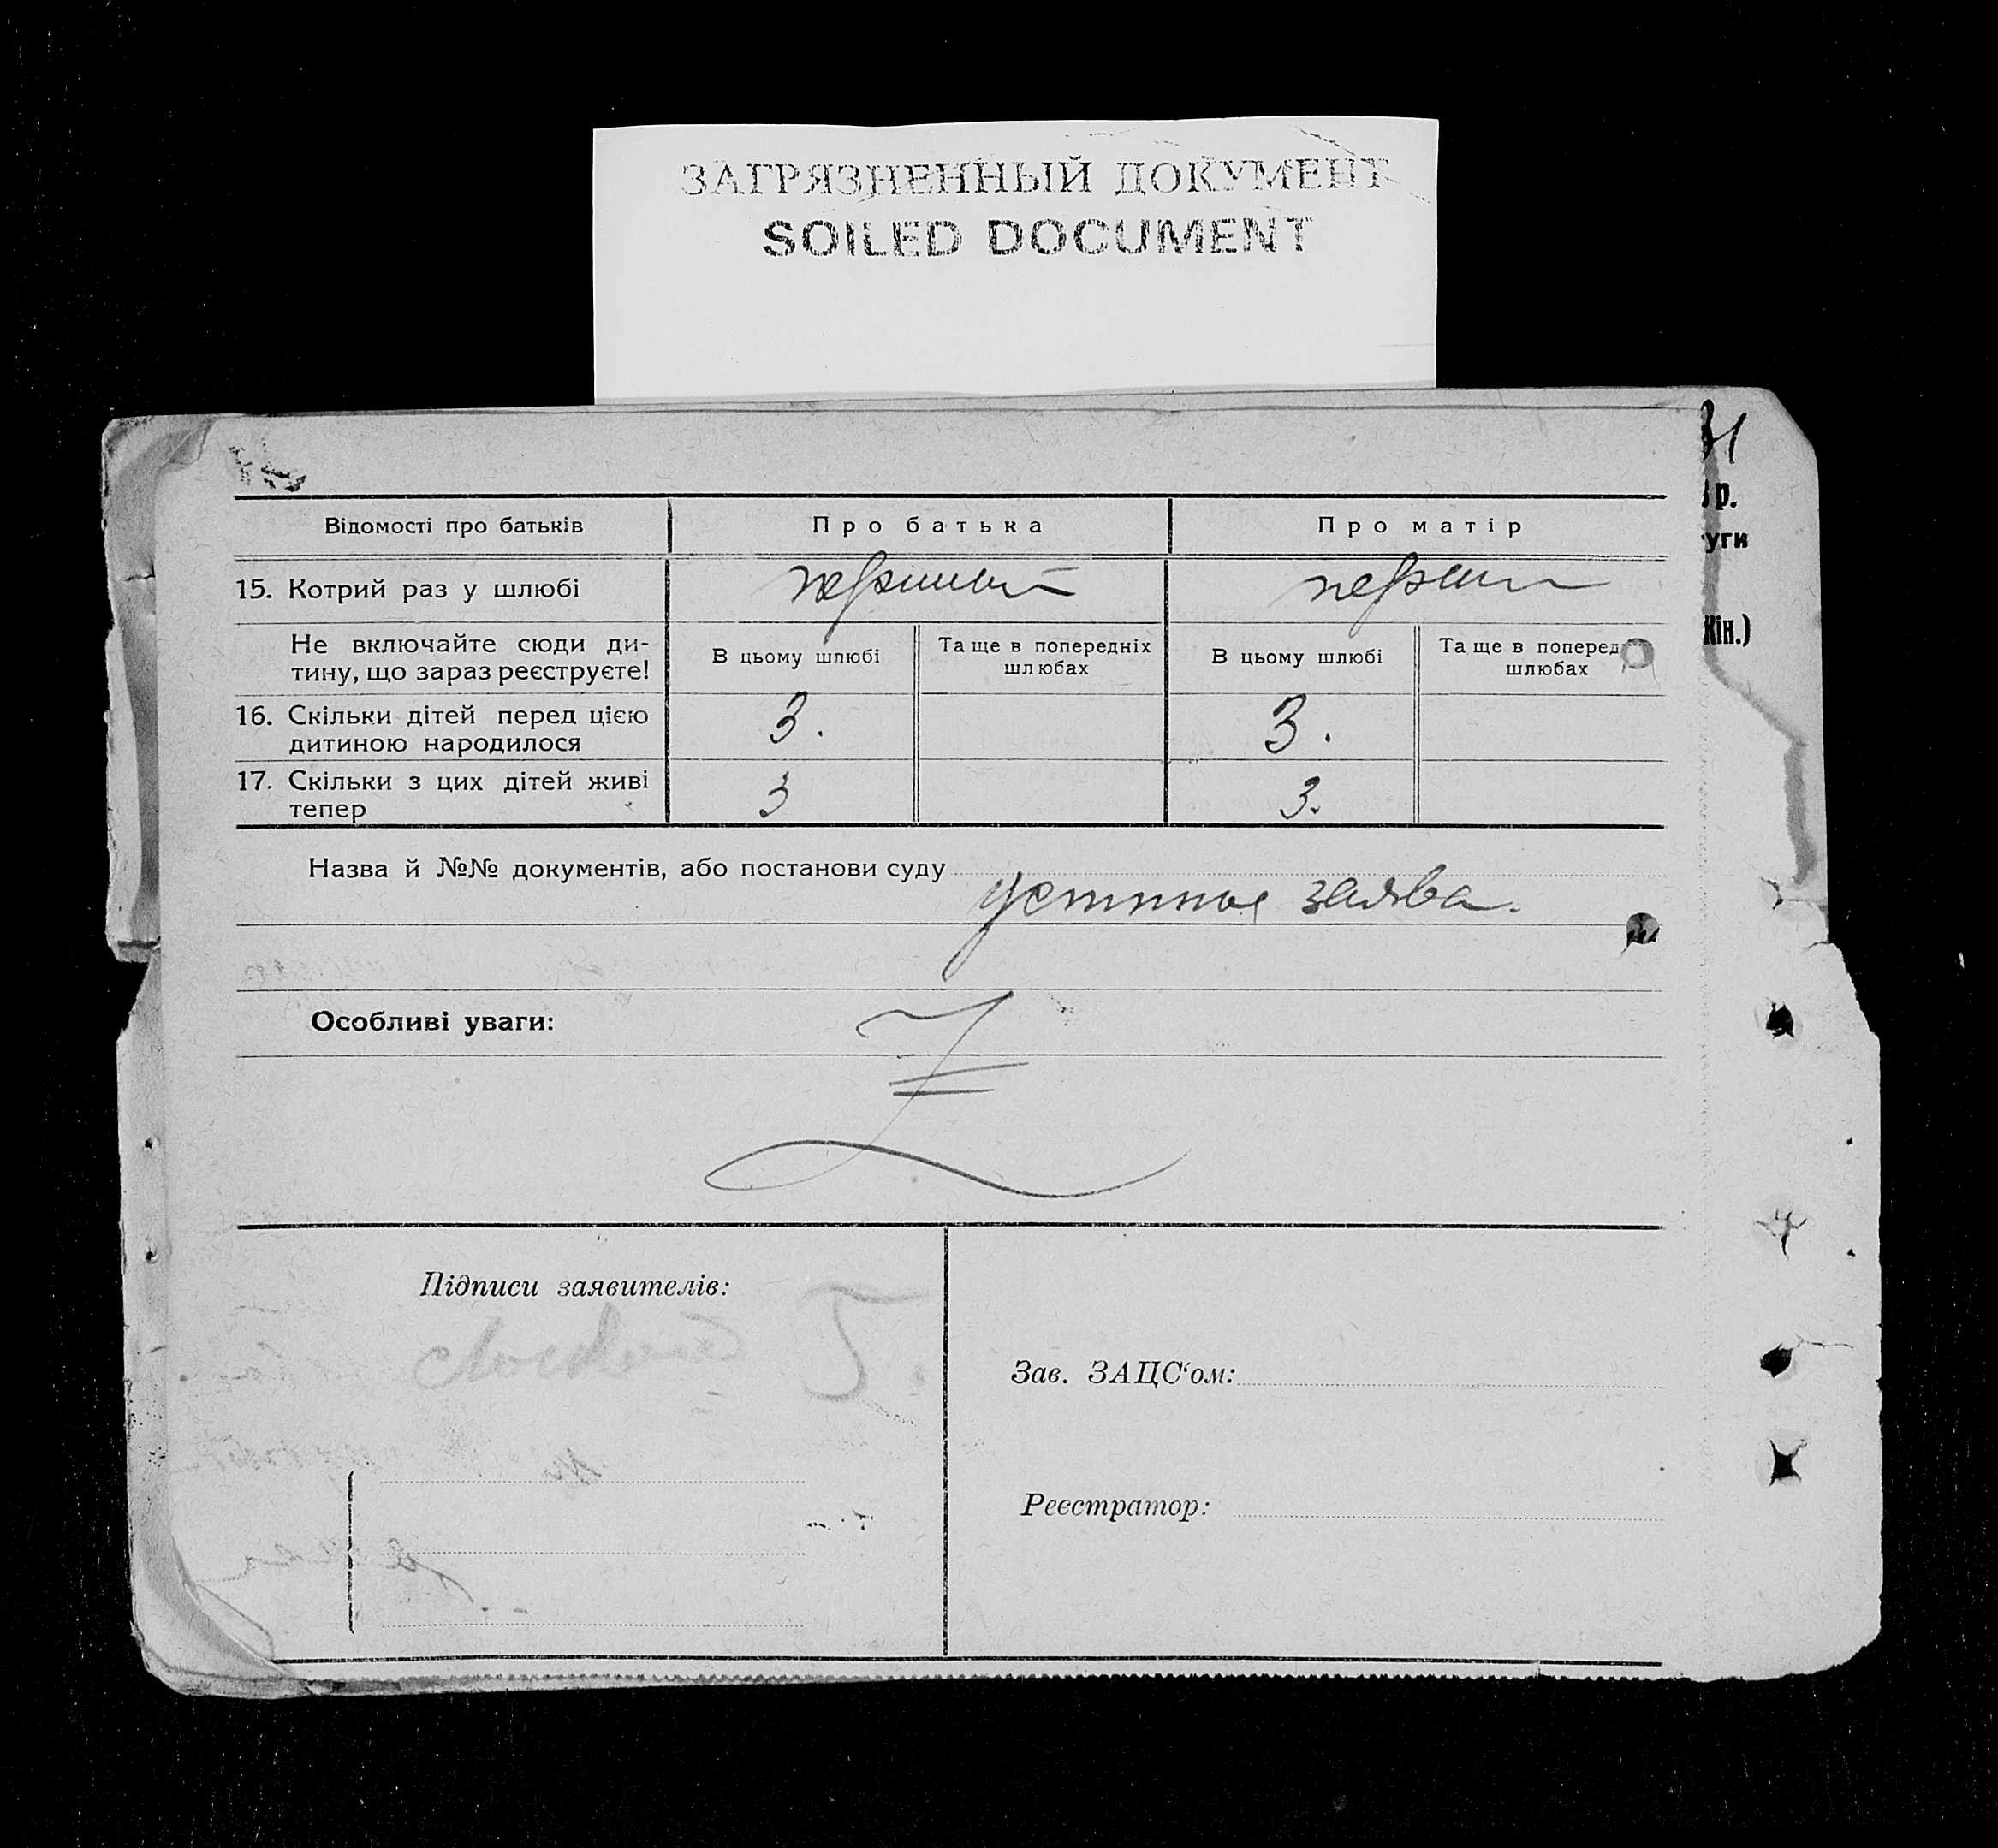 ЗАГРЯЗНЕННЫЙ ДОКУМЕНТ
SOILED DOCUMENT
31
р.
уги
Кін.)
Відомості про батьків Про батька Про матір
15. Котрий раз у шлюбі перший перши
Не включайте сюди ди-
тину, що зараз реєструєте!
В цьому шлюбі
Та ще в попередніх
шлюбах
В цьому шлюбі
Та ще в поперед
шлюбах
16. Скільки дітей перед цією
дитиною народилося 3. 3.
17. Скільки з цих дітей живі
тепер 3 3.
Назва й №№ документів, або постанови суду
устная заява.
Особливі уваги:
Підписи заявителів:
Зав. ЗАЦС‘ом:
Реєстратор: